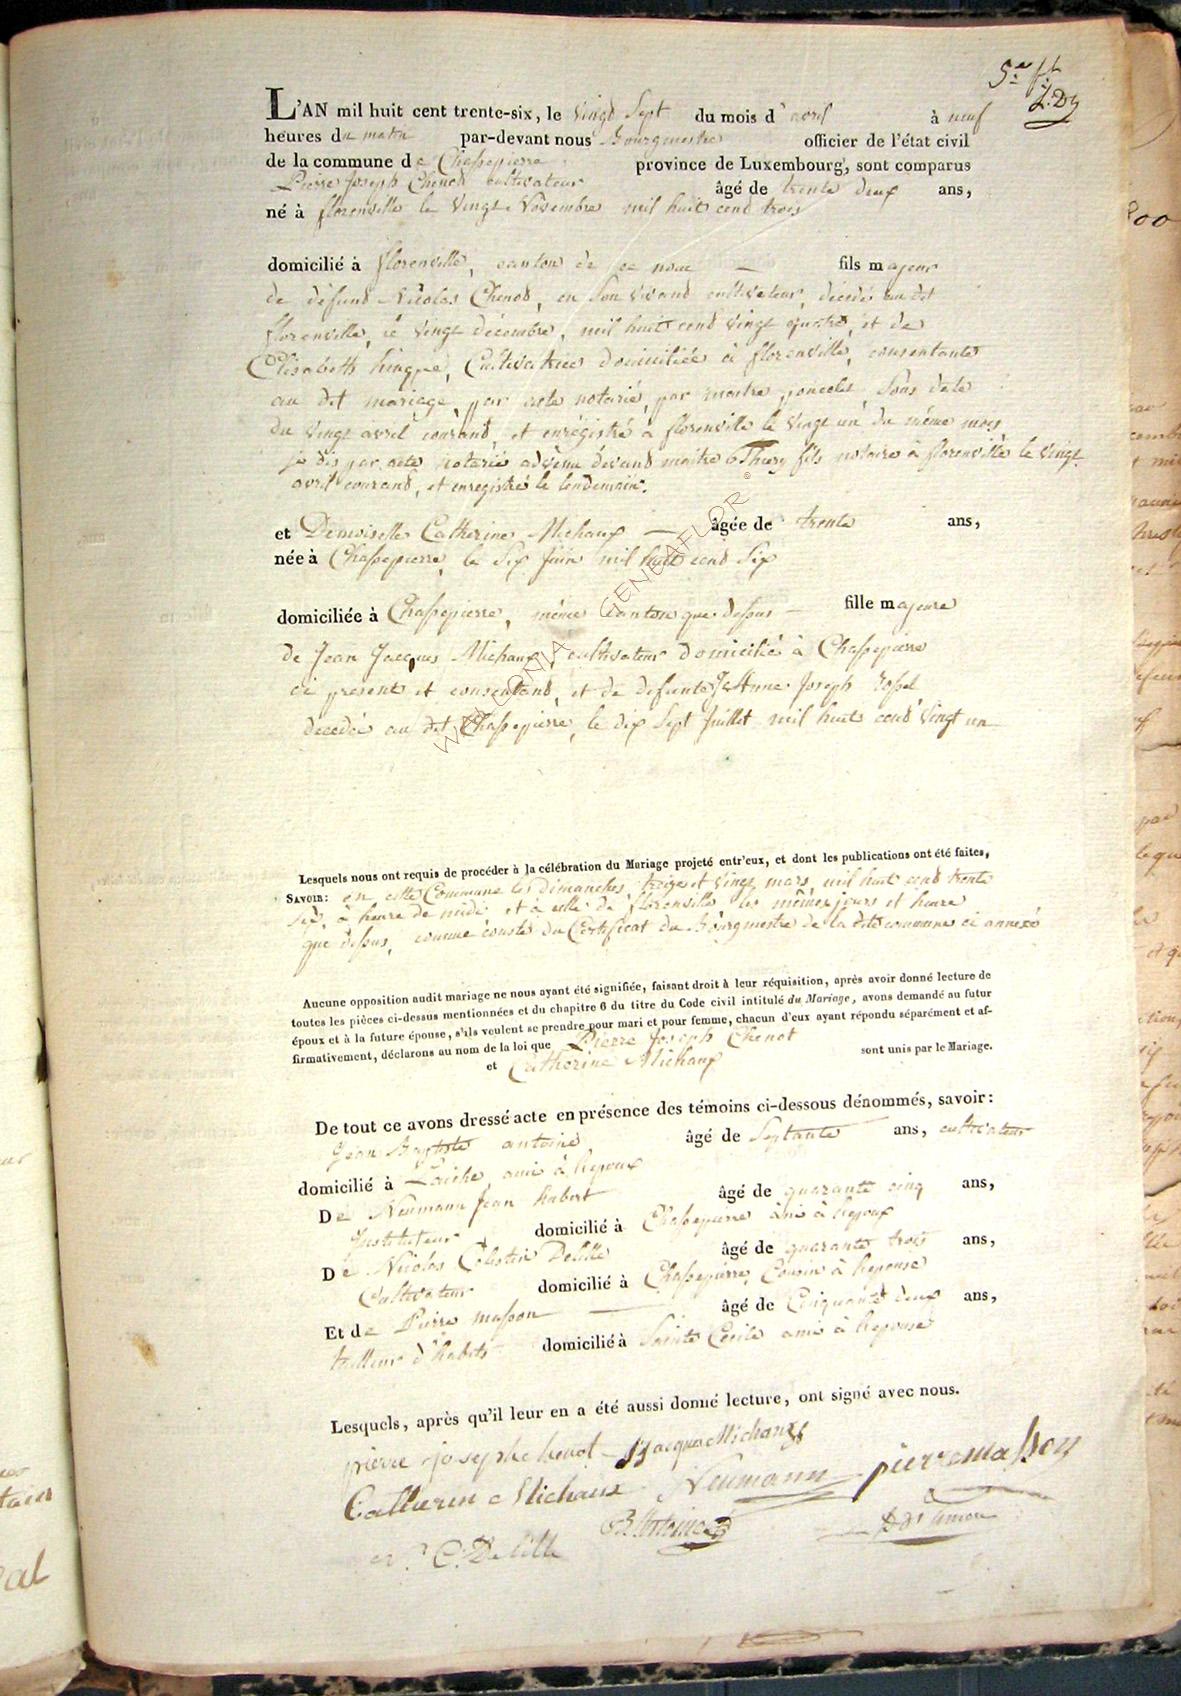 5.e ff
L.Dy
L'AN mil huit cent trente-six, le Vingt Sept du mois d'avril à neuf
heures du matin par-devant nous Bourgmestre officier de l'état civil
de la commune de Chassepierre province de Luxembourg, sont comparus
Pierre Joseph Chenot cultivateur âgé de trente deux ans,
né à florenville le Vingt Novembre mil huit cent trois
domicilié à florenville, canton de ce nom — fils majeur
de défunt Nicolas Chenot, en Son vivant cultivateur, décédé au dit
florenville, le vingt décembre, mil huit cent vingt quatre, et de
Elisabeth hingue, Cultivatrice domiciliée à florenville, consentante
au dit mariage, par acte notarié, par maitre poncelet, Sous date
du vingt avril courant, et enrégistré à florenville le vingt un du même mois
je dis par acte notarié advenu devant maitre Thiery fils notaire à florenville le vingt
avril courant, et enregistré le lendemain.
et Demoiselle Catherine Michaux — âgée de trente ans,
née à Chassepierre, le Six Juin mil huit cent Six
domiciliée à Chassepierre, même Canton que dessus — fille majeure
de Jean Jacques Michaux, cultivateur domicilié à Chassepierre
ci présent et consentant, et de defunte Anne Joseph rossel
décédée au dit Chassepierre, le dix Sept Juillet mil huit cent vingt un
WALLONIA GENEAFLOR ©
Lesquels nous ont requis de procéder à la célébration du Mariage projeté entr'eux, et dont les publications ont été faites,
SAVOIR: en cette Commune les dimanches treize et vingt mars mil huit cent trente
Six, à heure de midi et à celle de florenville les mêmes jours et heure
que dessus, comme conste du Certificat du Bourgmestre de la dite commune ci annexé
Aucune opposition audit mariage ne nous ayant été signifiée, faisant droit à leur réquisition, après avoir donné lecture de
toutes les pièces ci-dessus mentionnées et du chapitre 6 du titre du Code civil intitulé du Mariage, avons demandé au futur
époux et à la future épouse, s'ils veulent se prendre pour mari et pour femme, chacun d'eux ayant répondu séparément et af-
firmativement, déclarons au nom de la loi que Pierre Joseph Chenot
et Catherine Michaux sont unis par le Mariage.
De tout ce avons dressé acte en présence des témoins ci-dessous dénommés, savoir:
Jean Baptiste antoine âgé de Septante ans, cultivateur
domicilié à Laiche, ami à l'epoux
De Neumann Jean hubert âgé de quarante cinq ans,
Instituteur domicilié à Chassepierre ami à l'epoux
De Nicolas Celestin Delille âgé de quarante trois ans,
Cultivateur domicilié à Chassepierre, Cousin à l'epouse
Et de Pierre masson — âgé de Cinquante deux ans,
tailleur d'habits domicilié à Sainte Cecile ami à l'epouse
Lesquels, après qu'il leur en a été aussi donné lecture, ont signé avec nous.
pierre joseph chenot JJacque Michaux
Catherine Michaux Neumann pierre masson
B Antoine
N. C. Delille